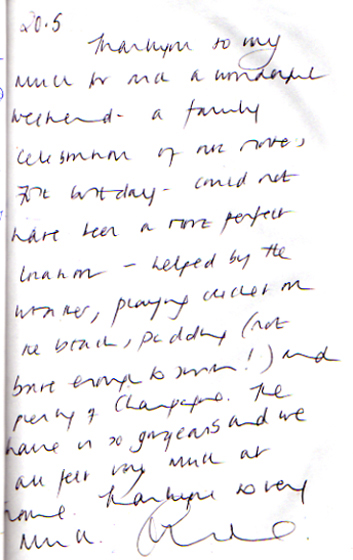 20.5
Thankyou so very
much for such a wonderful
weekend - a family
celebration of our mother's
70th birthday - could not
have been a more perfect
location - helped by the
weather, playing cricket on
the beach, paddling (not
brave enough to swim!) and
plenty of Champagne. The
house is so gorgeous and we
all felt very much at
home. Thankyou so very
much.